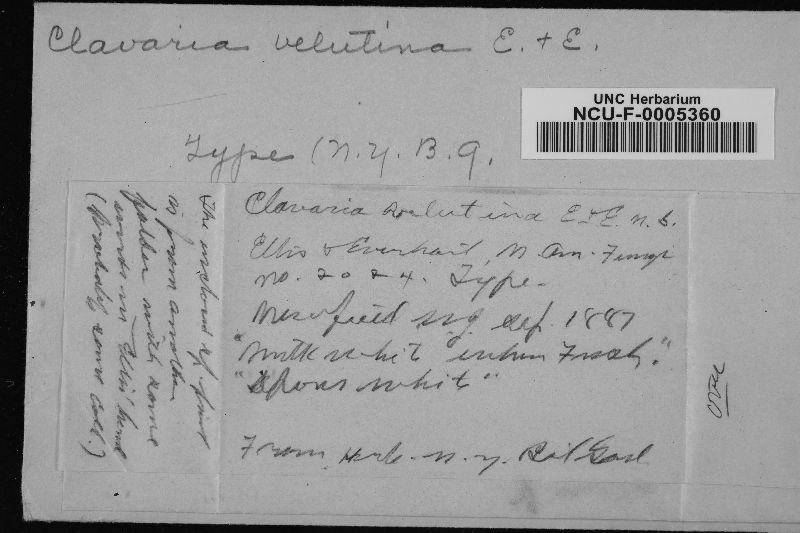 Clavaria velutina E. + E.
UNC Herbarium
NCU-F-0005360
Type (N.Y. B. G.
Clavaria velutina E & E. n. s.
Ellis & Everhart, N. Am. Fungi
No. 2024. Type.
Newfield N.J. Sep. 1887
"Milk white when Fresh."
"Spores white"
From Herb. N. Y. Bot Gard
The inclosed sp. print
is from another
folder with same
words in Ellis' hand
(Probably same coll.)
over